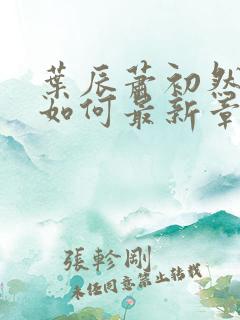 葉辰蕭初然
如何最新章
張軫剛
未經同意禁止轉載